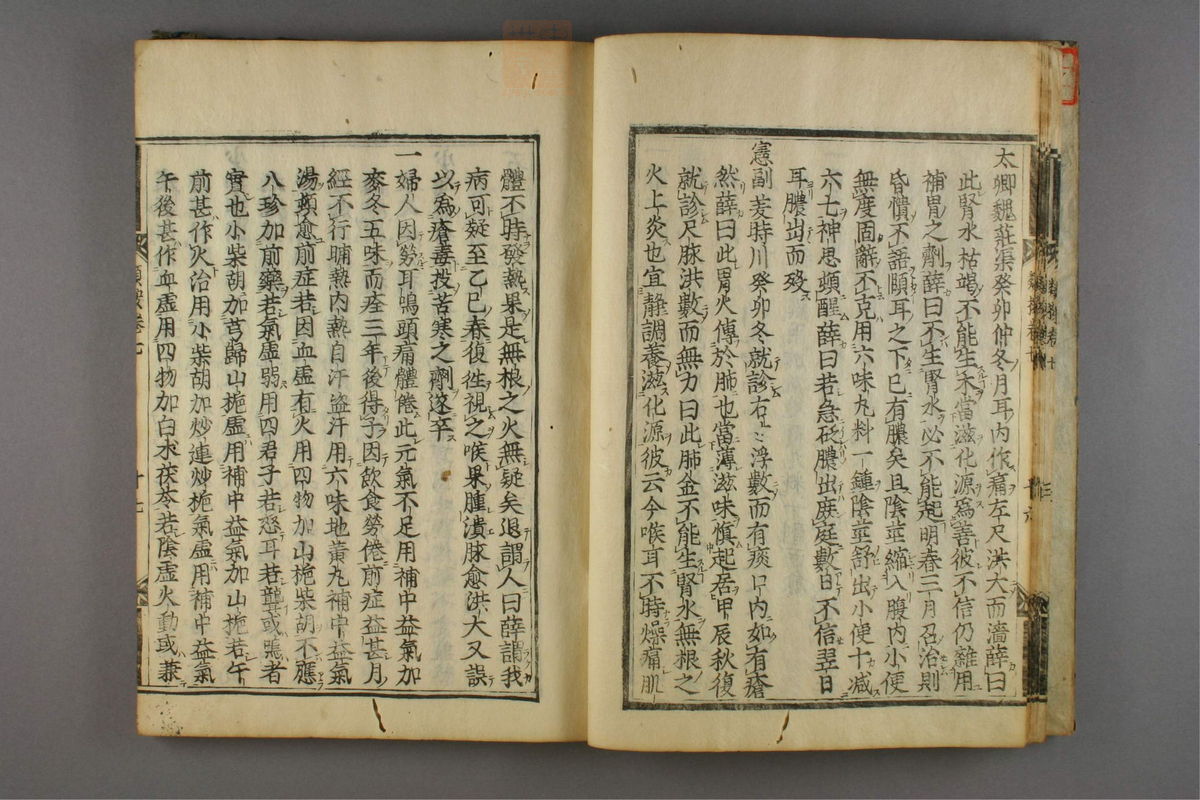 太卿魏莊渠癸卯仲冬月耳內作痛左尺洪大而濇薛曰
此腎水枯竭不能生木當滋化源爲善彼不信仍雜用
補胃之劑薛曰不生腎水必不能起明春三月召治則
昏憒不語頤耳之下已有膿矣且陰莖縮入腹內小便
無度固辭不克用六味丸料一鍾陰莖舒出小便十减
六七神思頓醒薛曰若急砭膿出庶延數日不信翌日
耳膿出而殁
憲副姜時川癸卯冬就診右寸浮數而有痰口內如有瘡
然薛曰此胃火傳於肺也當薄滋味慎起居甲辰秋復
就診尺脉洪數而無力曰此肺金不能生腎水無根之
火上炎也宜静調養滋化源彼云今喉耳不時燥痛肌
體不時發熱果是無根之火無疑矣退謂人曰薛謂我
病可疑至乙巳春復徃視之喉果腫潰脉愈洪大又誤
以爲瘡毒投苦寒之劑遂卒
一婦人因勞耳鳴頭痛體倦此元氣不足用補中益氣加
麥冬五味而痊三年後得子因飲食勞倦前症益甚月
經不行晡熱內熱自汗盜汗用六味地黃丸補中益氣
湯頓愈前症若因血虛有火用四物加山梔柴胡不應
八珍加前藥若氣虛弱用四君子若怒耳若聾或鳴者
實也小柴胡加芎歸山梔虛用補中益氣加山梔若午
前甚作火治用小柴胡加炒連炒梔氣虛用補中益氣
午後甚作血虛用四物加白朮茯苓若陰虛火動或兼